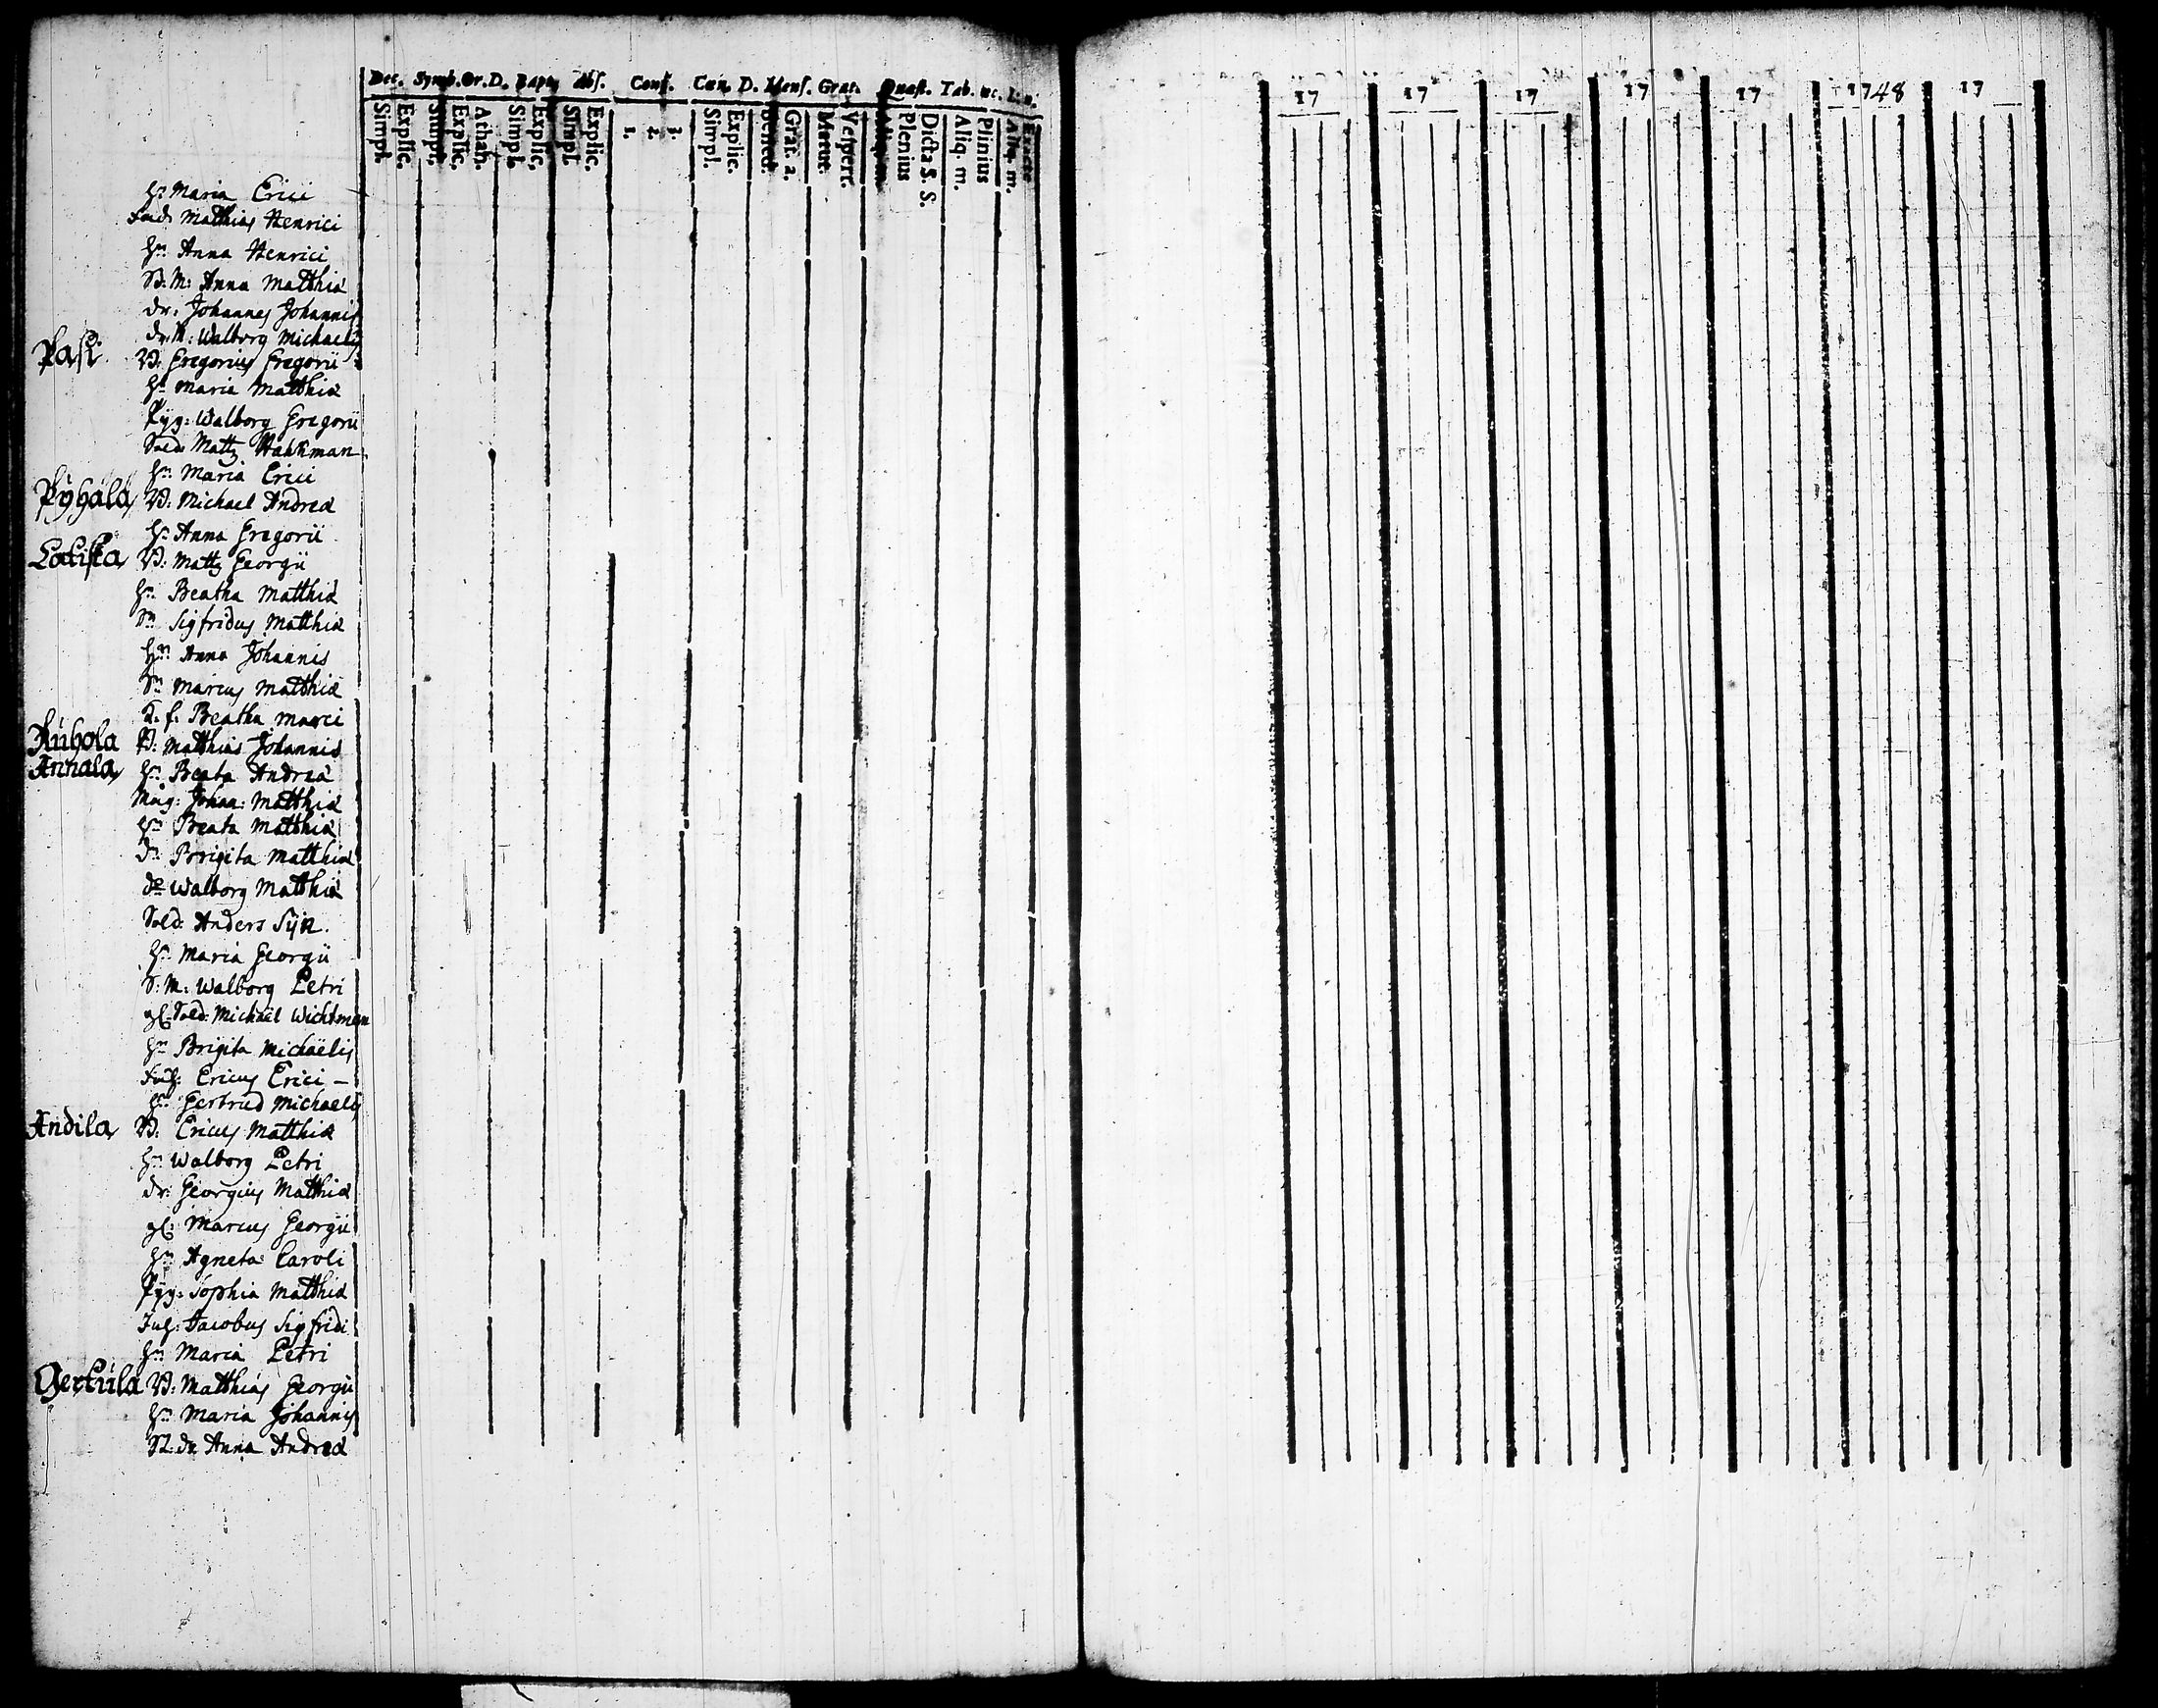 Dec. Symb. Or. D. Bapt. Abs. Conf. Cœn. D. Mens. Grat. Quæst. Tab. œc.
Simpl. Explic. Simpl. Explic. Athan. Simpl. Explic. Simpl. Explic. 1. 2. 3. Simpl. Explic. Bened. Grat. a. Matut. Vespert. Aliq. m. Plenius Dicta S. S. Aliq. m. Plinius Aliq. m. Exacte
17 17 17 17 17 1748 17
Hn Maria Erici
Mathias Henrici
Hn Anna Henrici
Sv. M: Anna Matthiæ
dr: Johannes Johannis
dr. h: Walborg Michaelis
Pasi W: Gregorius Gregorii
Hn Maria Matthiæ
Pyg: Walborg Gregorii
Sold: Matts Haukman
Hn Maria Erici
Pyhälä W: Michael Andreæ
Hn Anna Gregorii
W: Matts Georgii
Hn Beatha Matthiæ
Sn Sigfridus Matthiæ
Hn Anna Johannis
Sn Marcus Matthiæ
K. f. Beatha Marci
W: Matthias Johannis
Annala Hn Beata Andreæ
Måg: Johan: Matthiæ
Hn Beata Matthiæ
Dr Brigita Matthiæ
dr Walborg Matthiæ
Sold: Anders
Hn Maria Georgii
S: M: Walborg Petri
gl. Sold: Michael Wichtman
Hn Brigita Michaëlis
Inh: Ericus Erici –
Hn Gertrud Michaelis
Andila W: Ericus Matthiæ
Hn Walborg Petri
dr: Georgius Matthiæ
gl: Marcus Georgii
Hn Agneta Caroli
Pyg: Sophia Matthiæ
Inh: Jacobus Sigfridi
Hn Maria Petri
W: Matthias Georgii
Hn Maria Johannis
St. dr Anna Andreæ